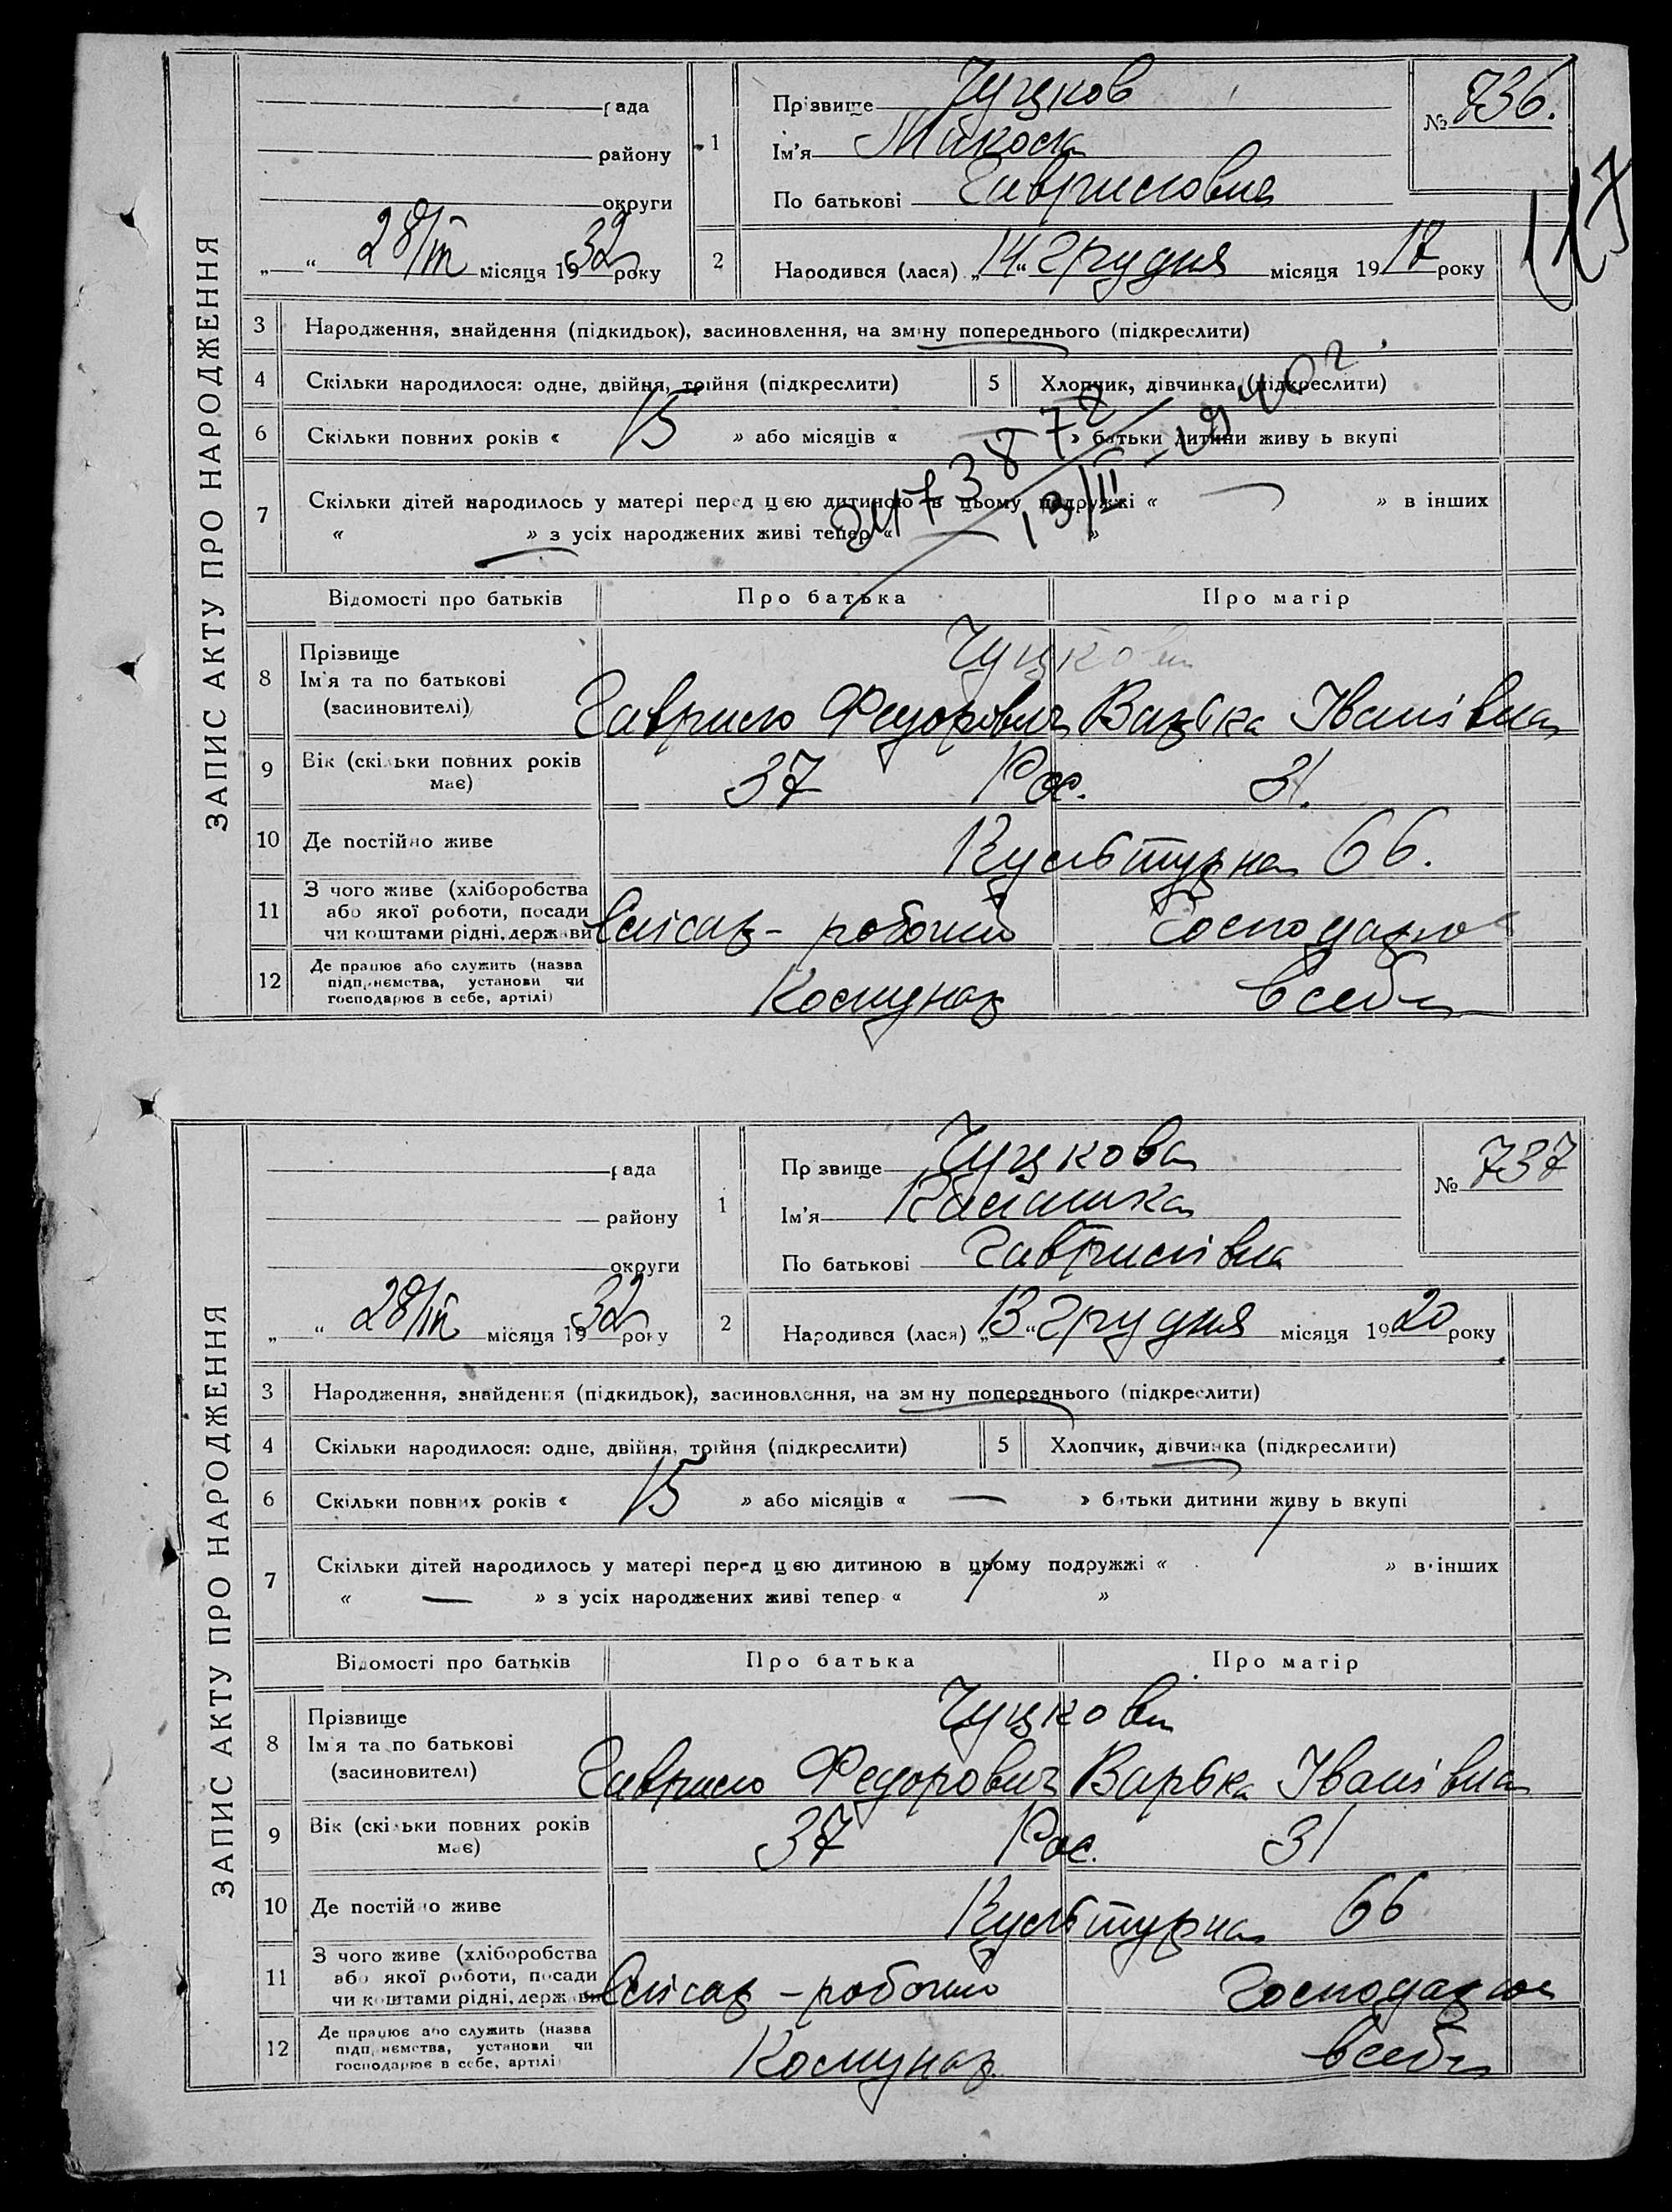 ЗАПИС АКТУ ПРО НАРОДЖЕННЯ
рада
району
округи
„ “ 28/III місяця 1932 року
1 Прізвище Чуцков
Ім'я Микола
По батькові Гаврилович
№ 736.
117
2 Народився (лася) „14“ Грудня місяця 1917 року
3 Народження, знайдення (підкидьок), засиновлення, на зміну попереднього (підкреслити)
4 Скільки народилося: одне, двійня, трійня (підкреслити)
5 Хлопчик, дівчинка (підкреслити)
6 Скільки повних років « 15 » або місяців « — » батьки дитини живуть вкупі
7 Скільки дітей народилось у матері перед цією дитиною в цьому подружжі « — » в інших
« — » з усіх народжених живі тепер « — »
Відомості про батьків Про батька Про матір
8 Прізвище
Ім'я та по батькові
(засиновителі)
Чуцкови
Гаврило Федорович Варька Іванівна
9 Вік (скільки повних років має) 37 Рос. 31.
10 Де постійно живе Культурна 66.
11 З чого живе (хліборобства
або якої роботи, посади
чи коштами рідні, держави
Слісар - робочий Господарює
12 Де працює або служить (назва
підприємства, установи чи
господарює в себе, артілі)
Комунар в себе
ЗАПИС АКТУ ПРО НАРОДЖЕННЯ
рада
району
округи
„ “ 28/III місяця 1932 року
1 Прізвище Чуцкова
Ім'я
По батькові Гаврилівна
№ 737
2 Народився (лася) „13“ Грудня місяця 1920 року
3 Народження, знайдення (підкидьок), засиновлення, на зміну попереднього (підкреслити)
4 Скільки народилося: одне, двійня, трійня (підкреслити)
5 Хлопчик, дівчинка (підкреслити)
6 Скільки повних років « 15 » або місяців « — » батьки дитини живуть вкупі
7 Скільки дітей народилось у матері перед цією дитиною в цьому подружжі « » в інших
« — » з усіх народжених живі тепер « »
Відомості про батьків Про батька Про матір
8 Прізвище
Ім'я та по батькові
(засиновителі)
Чуцкови
Гаврило Федорович Варька Іванівна
9 Вік (скільки повних років має) 37 Рос. 31
10 Де постійно живе Культурна 66
11 З чого живе (хліборобства
або якої роботи, посади
чи коштами рідні, держави
Слісар - робочий Господарює
12 Де працює або служить (назва
підприємства, установи чи
господарює в себе, артілі)
Комунар в себе